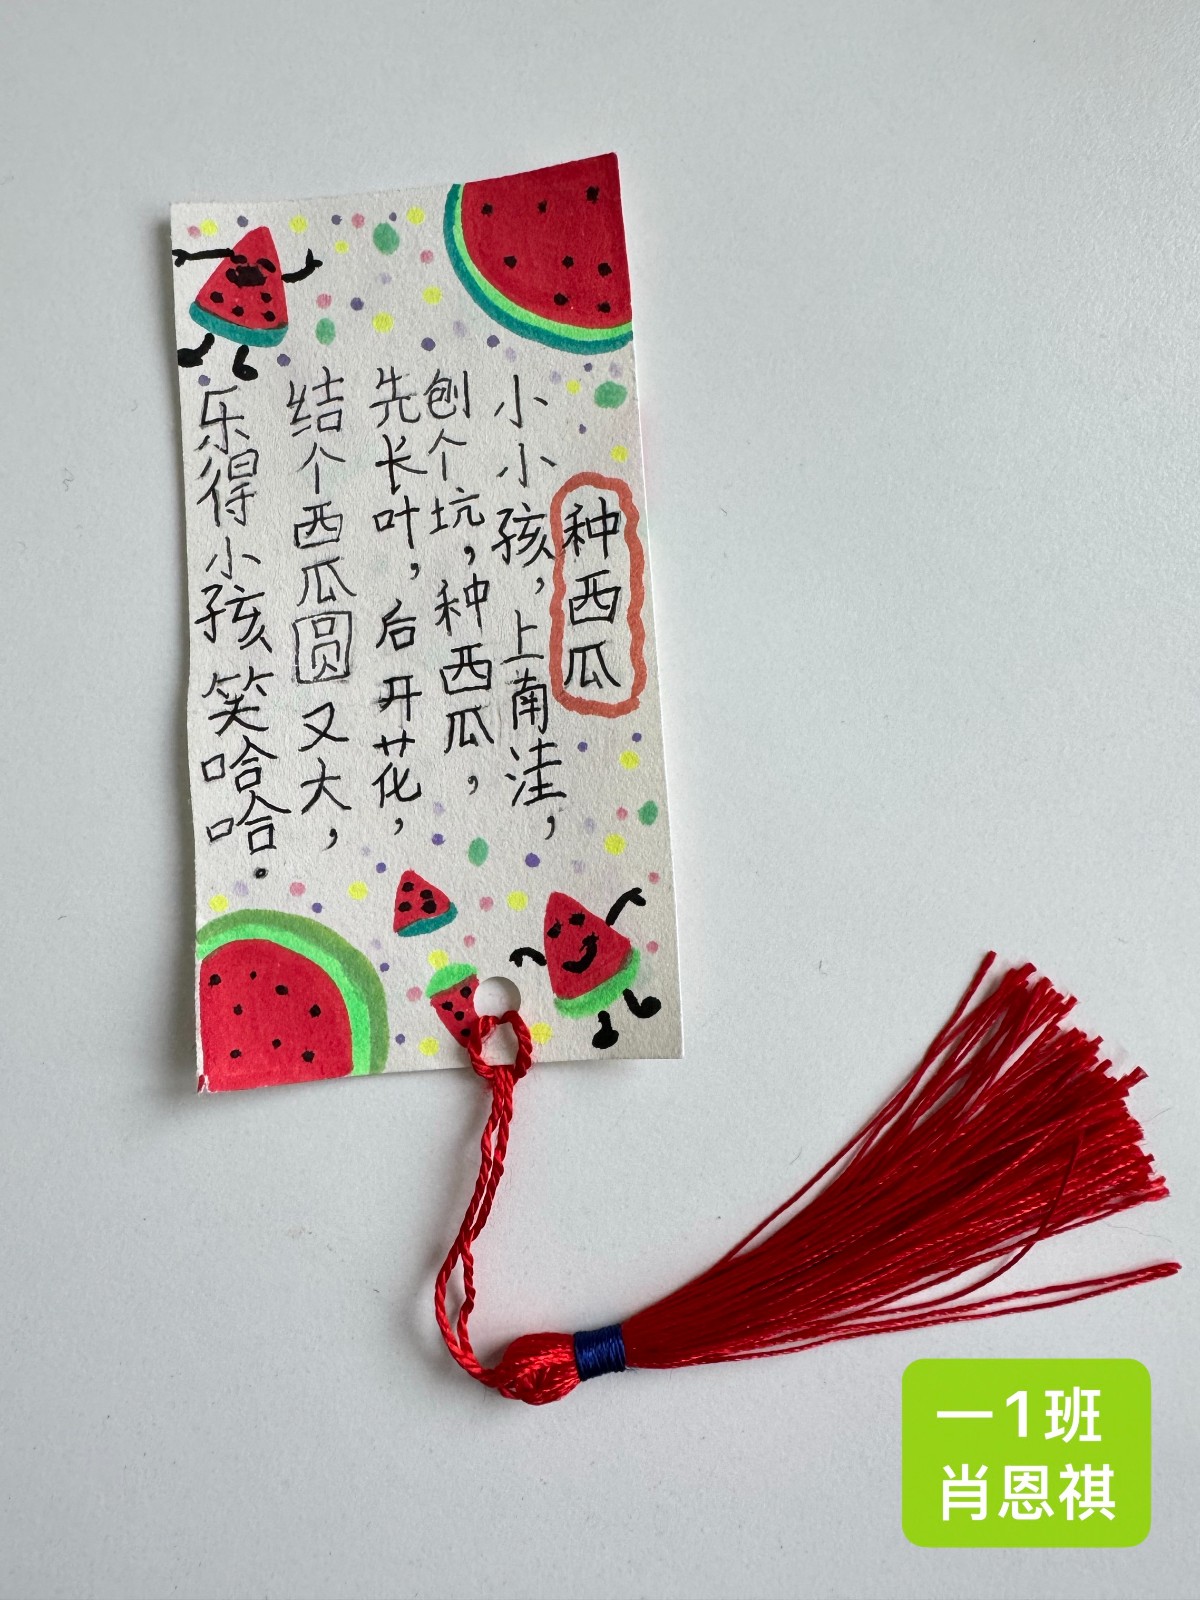 种西瓜
小小孩，上南洼，
刨个坑，种西瓜，
先长叶，后开花，
结个西瓜圆又大，
乐得小孩笑哈哈.
一1班
肖恩祺